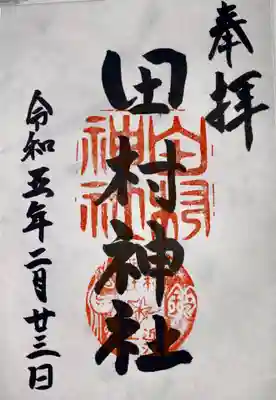 奉拝
田村神社
令和五年二月廿三日